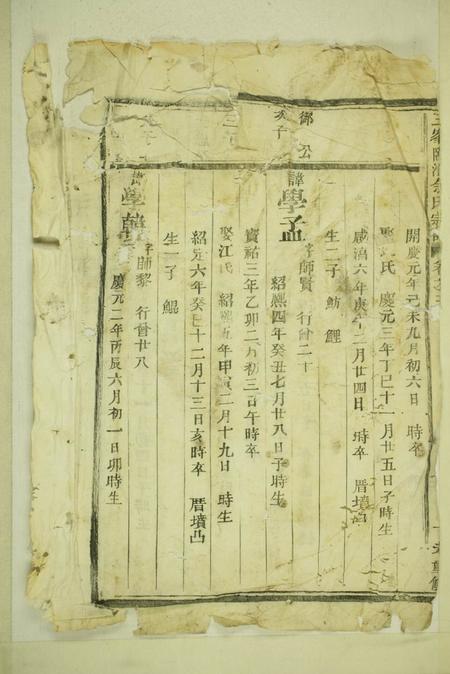 開慶元年己未九月初六日 時卒
娶 氏 慶元三年丁巳十一月廿五日子時生
咸淳六年庚午二月廿四日 時卒 厝墳凸
生二子 魴 鯉
御公
次子
諱學孟 字師賢 行曾二十
紹熙四年癸丑七月廿八日子時生
寶祐三年乙卯二月初三日午時卒
娶江氏 紹熙五年甲寅二月十九日 時生
紹定六年癸巳十二月十三日亥時卒 厝墳凸
生一子 鯤
諱學韓 字師黎 行曾廿八
慶元二年丙辰六月初一日卯時生